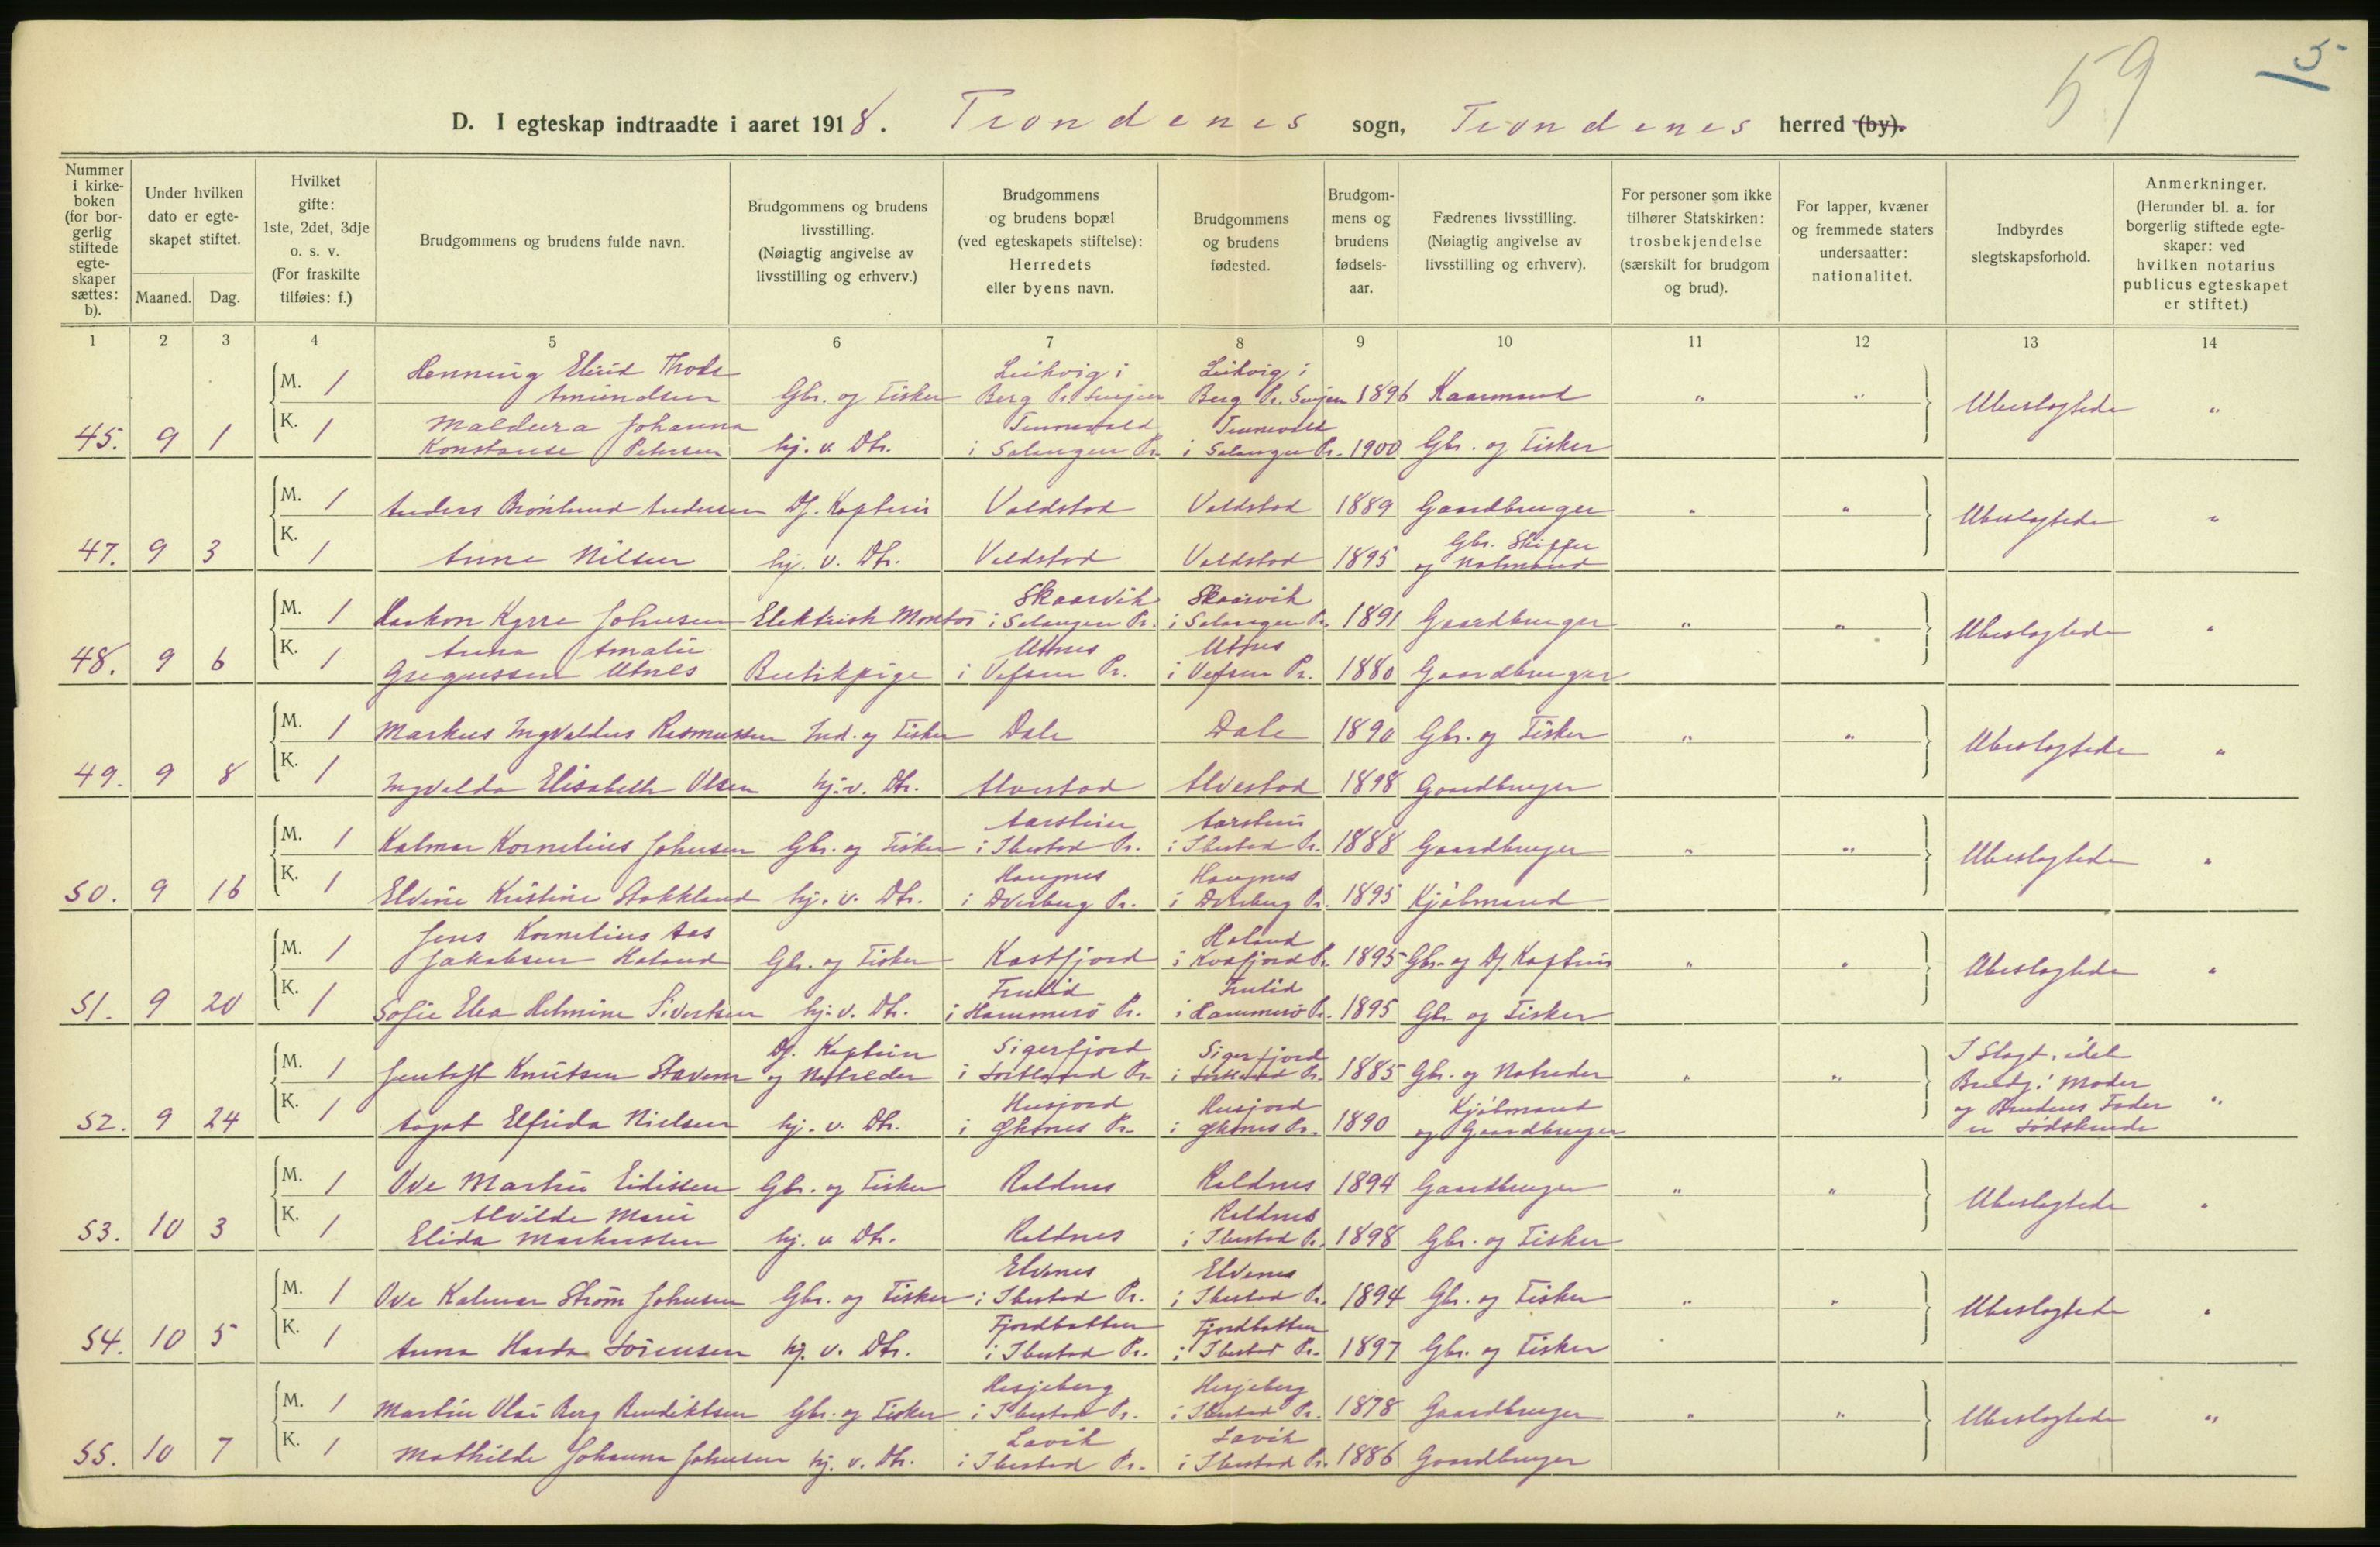 59
5-
D. I egteskap indtraadte i aaret 1918. Trondenes sogn, Trondenes herred (by).
Nummer i kirke-boken (for bor-gerlig stiftede egte-skaper sættes: b).
Under hvilken dato er egte-skapet stiftet.
Maaned. Dag.
Hvilket gifte: 1ste, 2det, 3dje o. s. v. (For fraskilte tilføies: f.)
Brudgommens og brudens fulde navn.
Brudgommens og brudens livsstilling. (Nøiagtig angivelse av livsstilling og erhverv.)
Brudgommens og brudens bopæl (ved egteskapets stiftelse): Herredets eller byens navn.
Brudgommens og brudens fødested.
Brudgom-mens og brudens fødsels-aar.
Fædrenes livsstilling. (Nøiagtig angivelse av livsstilling og erhverv).
For personer som ikke tilhører Statskirken: trosbekjendelse (særskilt for brudgom og brud).
For lapper, kvæner og fremmede staters undersaatter: nationalitet.
Indbyrdes slegtskapsforhold.
Anmerkninger. (Herunder bl. a. for borgerlig stiftede egte-skaper: ved hvilken notarius publicus egteskapet er stiftet.)
1 2 3 4 5 6 7 8 9 10 11 12 13 14
M. 1 Henning Thode Amundsen Gbr. og Fisker Leikvig i Berg Pr. Senjen Leikvig i Berg Pr. Senjen 1896 Kaarmand " " Ubeslægtede "
45. 9 1 K. 1 Johanna Konstanse Petersen hj. v. Dtr. Tennevold i Salangen Pr. Tennevold i Salangen Pr. 1900 Gbr. og Fisker
M. 1 Anders Brønlund Andersen Df. Kaptein Voldstad Voldstad 1889 Gaardbruger " " Ubeslægtede "
47. 9 3 K. 1 Anna Nilsen hj. v. Dtr. Voldstad Voldstad 1895 Gbr. Skipper og Notmand
M. 1 Haakon Kyrre Johnsen Elektrisk Montør Skaarvik i Salangen Pr. Skaarvik i Salangen Pr. 1891 Gaardbruger " " Ubeslægtede "
48. 9 6 K. 1 Anna Amalie Gregussen Utnes Butikpige Utnes i Vefsen Pr. Utnes i Vefsen Pr. 1880 Gaardbruger
M. 1 Markus Ingvaldus Rasmussen Ind. og Fisker Dale Dale 1890 Gbr. og Fisker " " Ubeslægtede "
49. 9 8 K. 1 Ingvalda Elisabeth Olsen hj. v. Dtr. Alvestad Alvestad 1898 Gaardbruger
M. 1 Kalmar Kornelius Johnsen Gbr. og Fisker Aarstein i Ibestad Pr. Aarstein i Ibestad Pr. 1888 Gaardbruger " " Ubeslægtede "
50. 9 16 K. 1 Elvine Kristine Stokkland hj. v. Dtr. Haugnes i Dverberg Pr. Haugnes i Dverberg Pr. 1895 Kjøbmand
M. 1 Jens Kornelius Aas Jakobsen Haland Gbr. og Fisker Kastfjord Haland i Kvæfjord Pr. 1895 Gbr. og Df. Kaptein " " Ubeslægtede "
51. 9 20 K. 1 Sofie Elea Helmine Sivertsen hj. v. Dtr. i Hammerø Pr. i Hammerø Pr. 1895 Gbr. og Fisker
M. 1 Knutsen Stavem Df. Kaptein og Notreder Sigerfjord i Sortland Pr. Sigerfjord i Sortland Pr. 1885 Gbr. og Notreder " " I Slægt, idet Brudg.' Moder og Brudens Fader er Sødskende "
52. 9 24 K. 1 Aagot Elfrida Nielsen hj. v. Dtr. Husjord i Øksnes Pr. Husjord i Øksnes Pr. 1890 Kjøbmand og Gaardbruger
M. 1 Ove Martin Eidissen Gbr. og Fisker Roldnes Roldnes 1894 Gaardbruger " " Ubeslægtede "
53. 10 3 K. 1 Alvilde Marie Elida Markussen hj. v. Dtr. Roldnes Roldnes i Ibestad Pr. 1898 Gbr. og Fisker
M. 1 Ove Kalmar Strøm Johnsen Gbr. og Fisker Elvenes i Ibestad Pr. Elvenes i Ibestad Pr. 1894 Gbr. og Fisker " " Ubeslægtede "
54. 10 5 K. 1 Anna Harda Sørensen hj. v. Dtr. Fjordbotten i Ibestad Pr. Fjordbotten i Ibestad Pr. 1897 Gbr. og Fisker
M. 1 Martin Olai Berg Bendiktsen Gbr. og Fisker Hesjeberg i Ibestad Pr. Hesjeberg i Ibestad Pr. 1878 Gaardbruger " " Ubeslægtede "
55. 10 7 K. 1 Mathilde Johanna Johnsen hj. v. Dtr. Lavik i Ibestad Pr. Lavik i Ibestad Pr. 1886 Gaardbruger